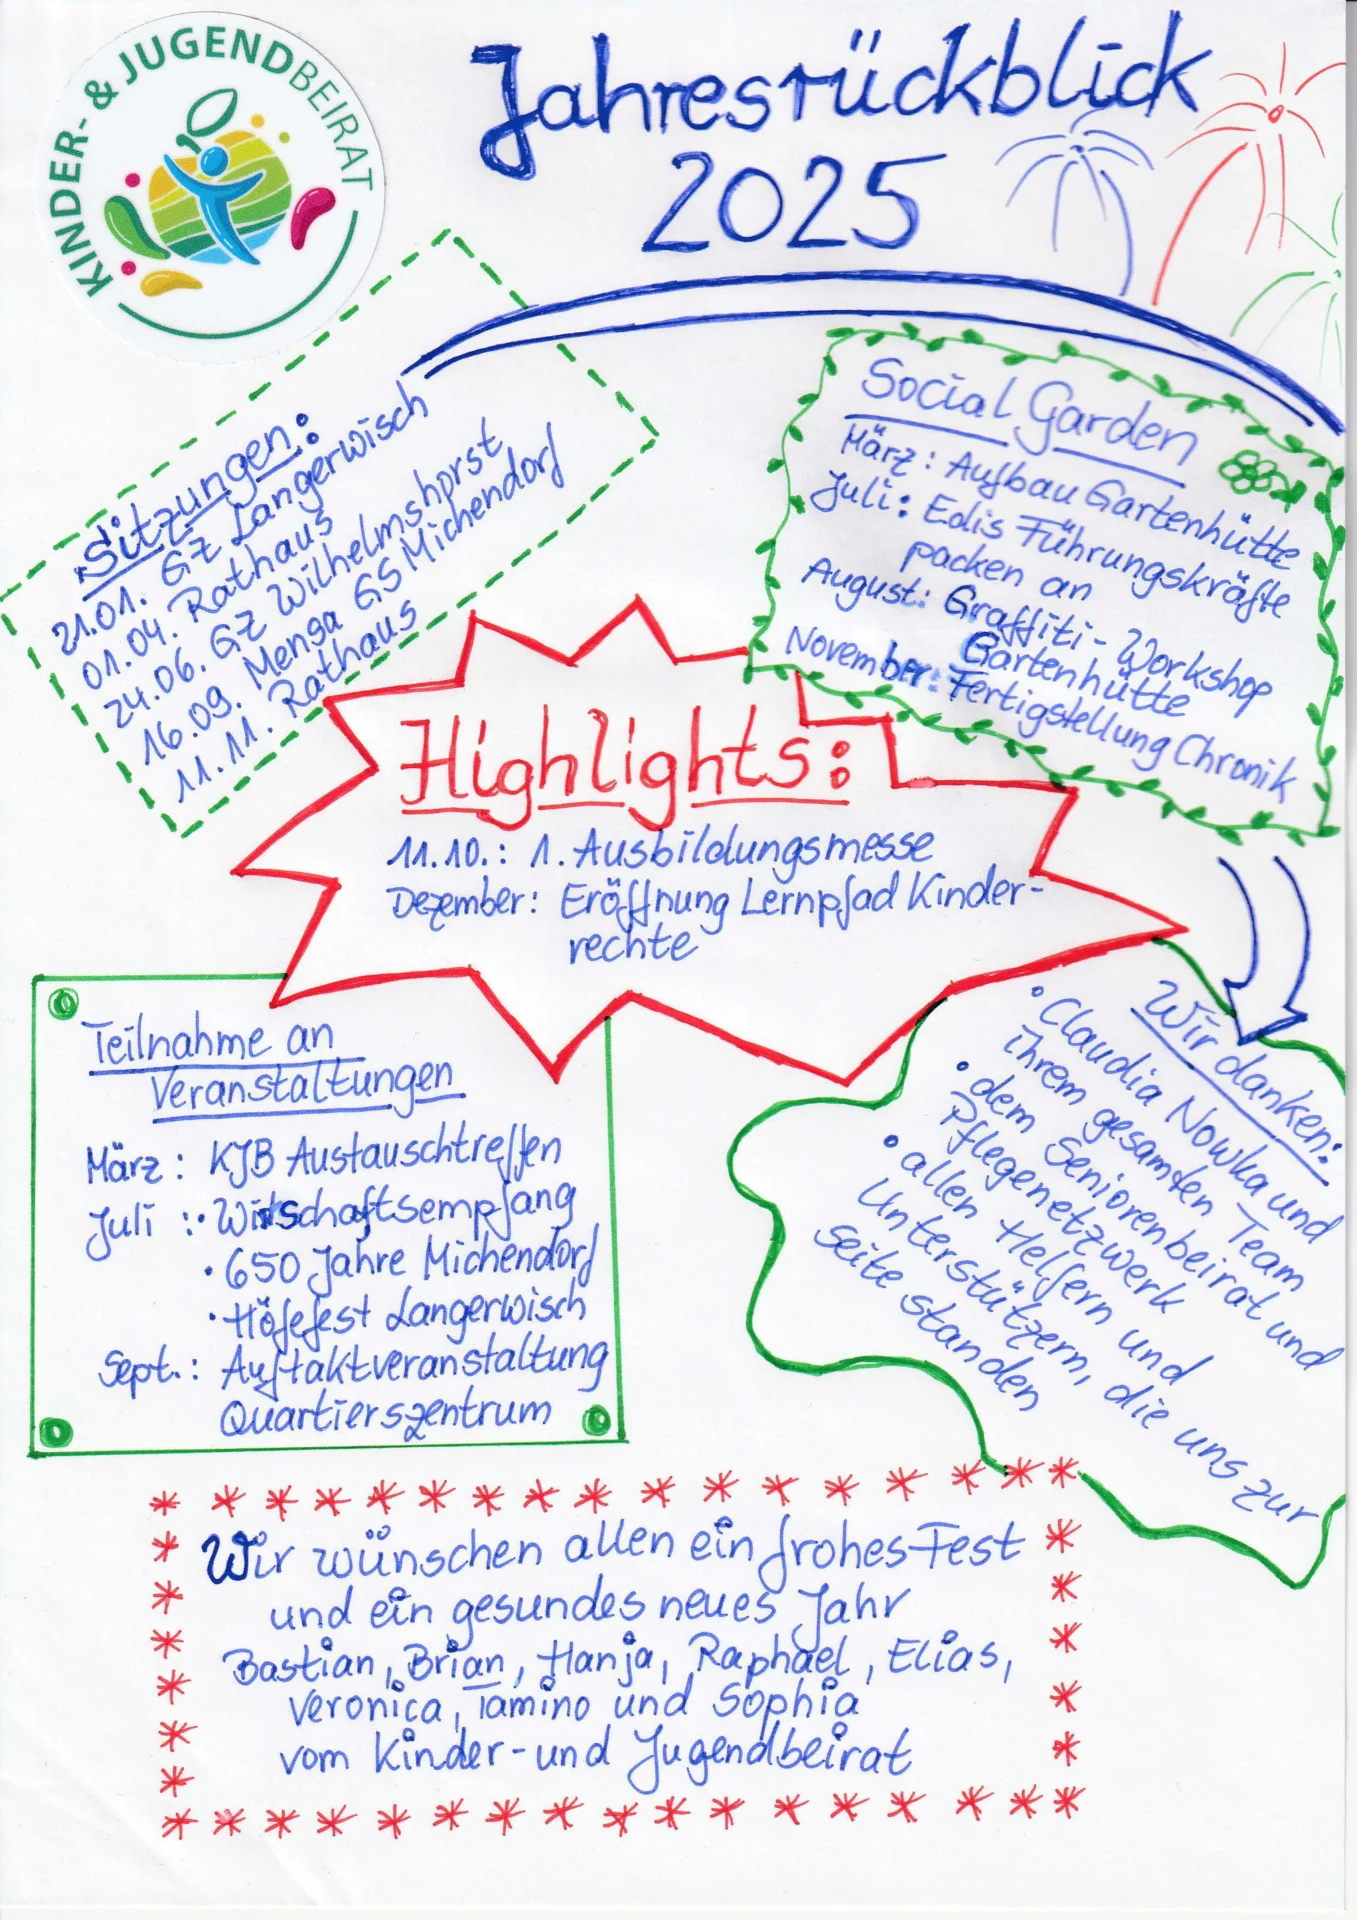 KINDER- & JUGENDBEIRAT
Jahresrückblick
2025
Sitzungen:
21.01. GZ Langerwisch
01.04. Rathaus
24.06. GZ Wilhelmshorst
16.09. Mensa GS Michendorf
11.11. Rathaus
Social Garden
März: Aufbau Gartenhütte
Juli: Edis Führungskräfte
packen an
August: Graffiti-Workshop
Gartenhütte
November: Fertigstellung Chronik
Highlights:
11.10.: 1. Ausbildungsmesse
Dezember: Eröffnung Lernpfad Kinder-
rechte
Teilnahme an
Veranstaltungen
März: KJB Austauschtreffen
Juli: • Wirtschaftsempfang
• 650 Jahre Michendorf
• Höfefest Langerwisch
Sept.: Auftaktveranstaltung
Quartierszentrum
Wir danken:
• Claudia Nowka und
ihrem gesamten Team
• dem Seniorenbeirat und
Pflegenetzwerk
• allen Helfern und
Unterstützern, die uns zur
Seite standen
Wir wünschen allen ein frohes Fest
und ein gesundes neues Jahr
Bastian, Brian, Hanja, Raphael, Elias,
Veronica, Tamino und Sophia
vom Kinder- und Jugendbeirat